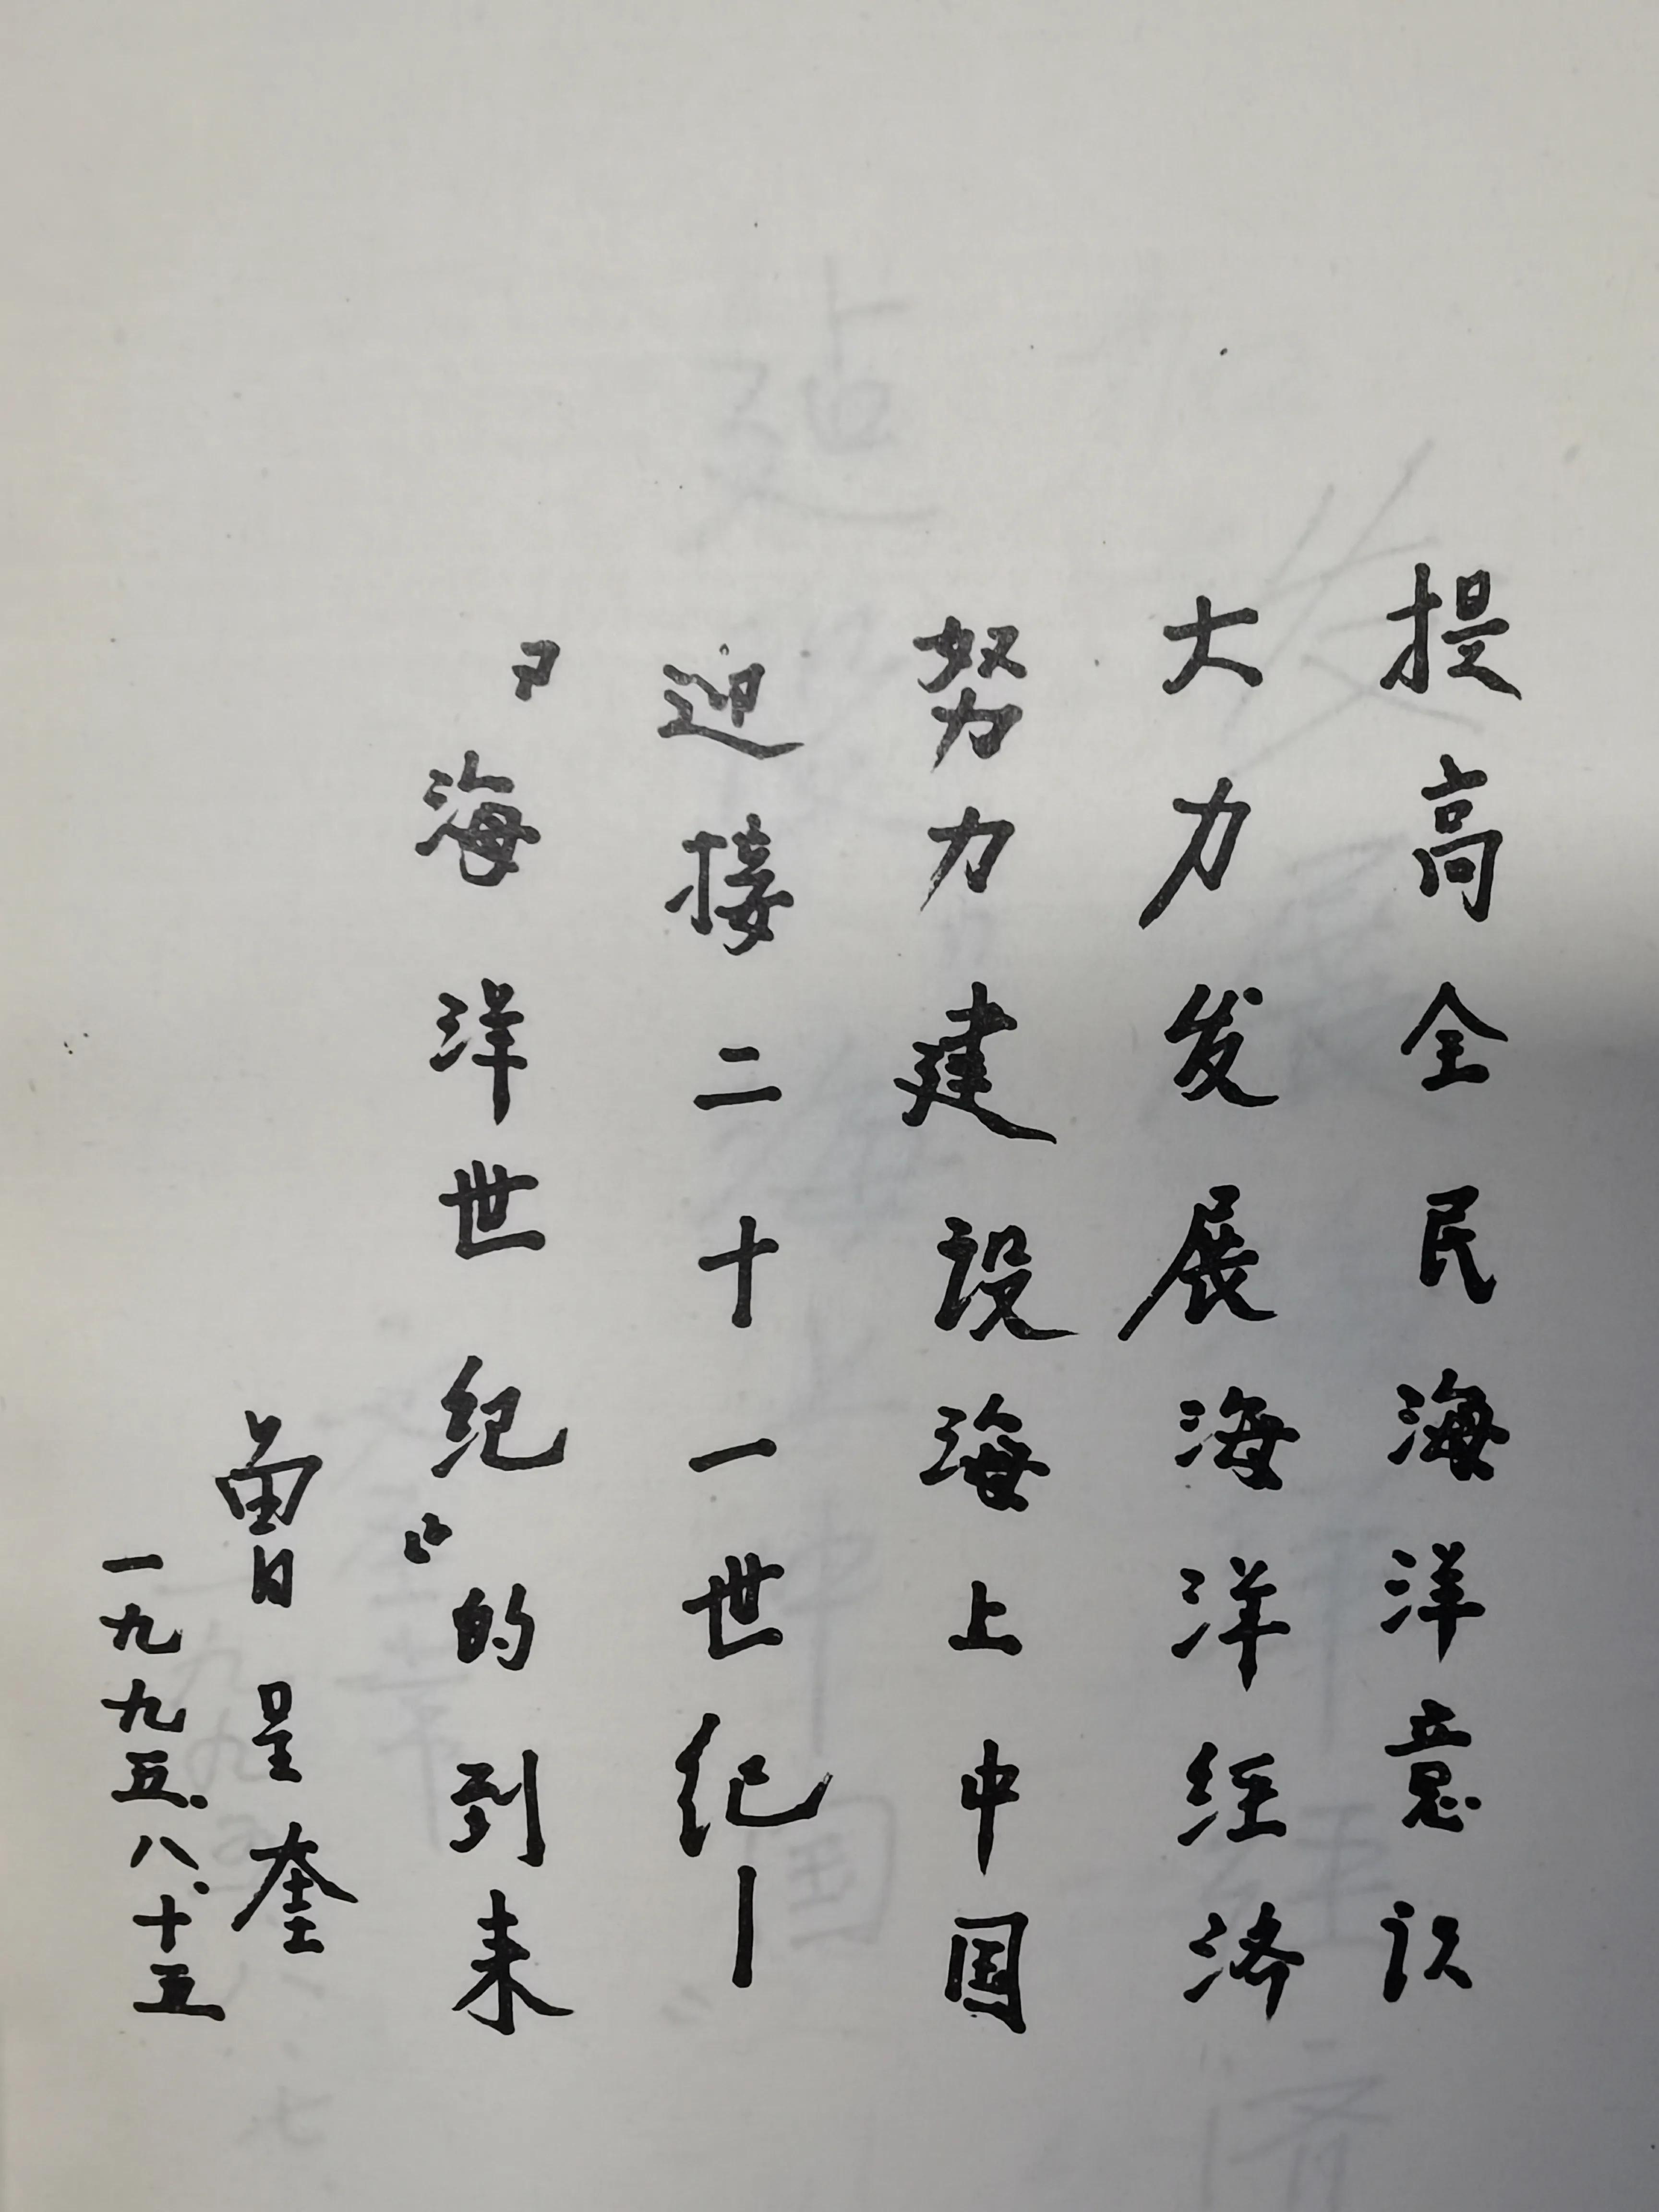 提高全民海洋意识
大力发展海洋经济
努力建设海上中国
迎接二十一世纪—
“海洋世纪”的到来
曾呈奎
一九九五.八.十五